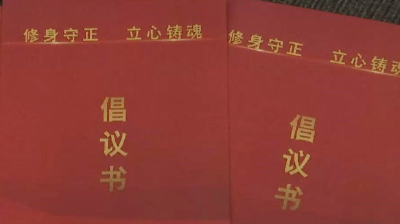 修身守正 立心铸魂
倡议书
修身守正 立心铸魂
倡议书